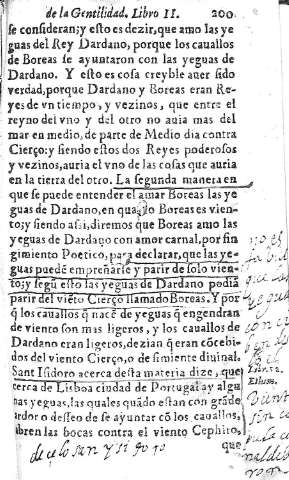 de la Gentilidad. Libro II. 200
se consideran; y esto es dezir, que amo las ye
guas del Rey Dardano, porque los cauallos
de Boreas se ayuntaron con las yeguas de
Dardano. Y esto es cosa creyble auer sido
verdad, porque Dardano y Boreas eran Re-
yes de vn tiempo, y vezinos, que entre el
reyno del vno y del otro no auia mas del
mar en medio, de parte de Medio dia contra
Cierço: y siendo estos dos Reyes poderosos
y vezinos, auria el vno de las cosas que auria
en la tierra del otro. La segunda manera en
que se puede entender el amar Boreas las ye
guas de Dardano, en quāto Boreas es vien-
to; y siendo assi, diremos que Boreas amo las
yeguas de Dardano con amor carnal, por fin
gimiento Poetico, para declarar, que las ye-
guas puedē empreñarse y parir de solo vien-
to; y segū esto las yeguas de Dardano podiā
parir del viēto Cierço llamado Boreas. Y por
q̄ los cauallos q̄ nacē de yeguas q̄ engendran
de viento son mas ligeros, y los cauallos de
Dardano eran ligeros, dezian q̄ eran cōcebi-
dos del viento Cierço, o de simiente diuinal.
Sant Isidoro acerca desta materia dize, que
cerca de Lisboa ciudad de Portugal ay algu
nas yeguas, las quales quādo estan con grāde
ardor o desseo de se ayuntar cō los cauallos,
abren las bocas contra el viento Cephiro,
que
no es